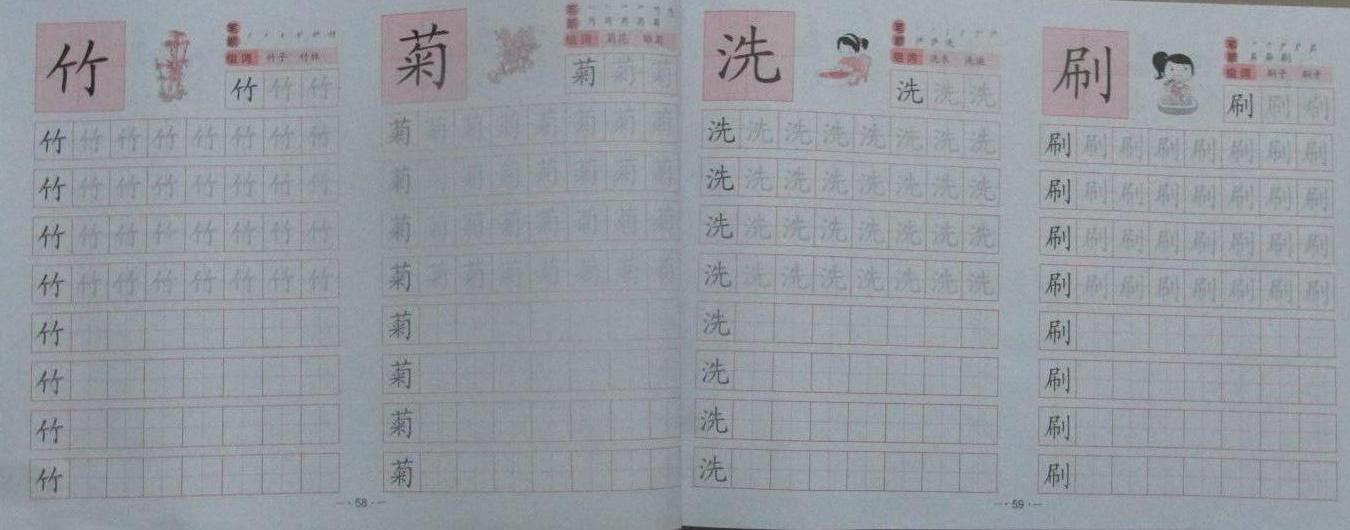 竹
笔顺
组词 竹子 竹林
竹 竹 竹
竹 竹 竹 竹 竹 竹 竹 竹
竹 竹 竹 竹 竹 竹 竹 竹
竹 竹 竹 竹 竹 竹 竹 竹
竹 竹 竹 竹 竹 竹 竹 竹
竹
竹
竹
竹
菊
笔顺
组词 菊花
菊 菊 菊
菊 菊 菊 菊 菊 菊 菊 菊
菊 菊 菊 菊 菊 菊 菊 菊
菊 菊 菊 菊 菊 菊 菊 菊
菊 菊 菊 菊 菊 菊 菊 菊
菊
菊
菊
菊
58
洗
笔顺
组词 洗衣
洗 洗 洗
洗 洗 洗 洗 洗 洗 洗 洗
洗 洗 洗 洗 洗 洗 洗 洗
洗 洗 洗 洗 洗 洗 洗 洗
洗 洗 洗 洗 洗 洗 洗 洗
洗
洗
洗
洗
刷
笔顺
组词 刷子 刷牙
刷 刷 刷
刷 刷 刷 刷 刷 刷 刷 刷
刷 刷 刷 刷 刷 刷 刷 刷
刷 刷 刷 刷 刷 刷 刷 刷
刷 刷 刷 刷 刷 刷 刷 刷
刷
刷
刷
刷
59